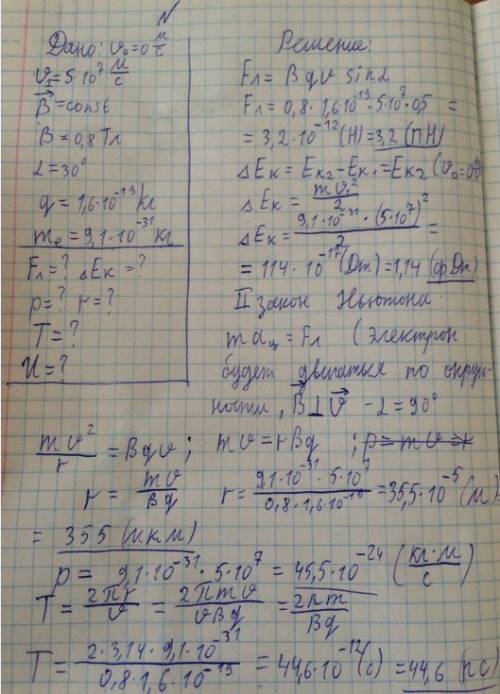 N
Дано: v₀=0 м/с
v₁=5·10⁷ м/с
B⃗=const
B=0,8Тл
α=30°
q=1,6·10⁻¹⁹ кг
mₑ=9,1·10⁻³¹ кг
Fл=? ΔEк=?
p=? r=?
T=?
U=?
Решение:
Fл=Bqv sinα
Fл=0,8·1,6·10⁻¹⁹·5·10⁷·0,5 =
=3,2·10⁻¹²(Н)=3,2(пН)
ΔEк=Eк₂-Eк₁=Eк₂(v₀=0
ΔEк=mv₁²/2
ΔEк=9,1·10⁻³¹·(5·10⁷)²/2 =
=114·10⁻¹⁷(Дж)=1,14(фДж)
II закон Ньютона.
maц=Fл (электрон
будет двигаться по окруж-
ности, B⊥v⃗ -α=90°
mv²/r=Bqv; mv=rBq ; p=mv=r
r=mv/Bq r=9,1·10⁻³¹·5·10⁷/0,8·1,6·10⁻¹⁹=35,5·10⁻⁵(м)
= 355(мкм)
p= 9,1·10⁻³¹·5·10⁷=45,5·10⁻²⁴ (кг·м/с)
T=2πr/v=2πmv/vBq=2πm/Bq
T=2·3,14·9,1·10⁻³¹/0,8·1,6·10⁻¹⁹=44,6·10⁻¹²(с)=44,6(пс)